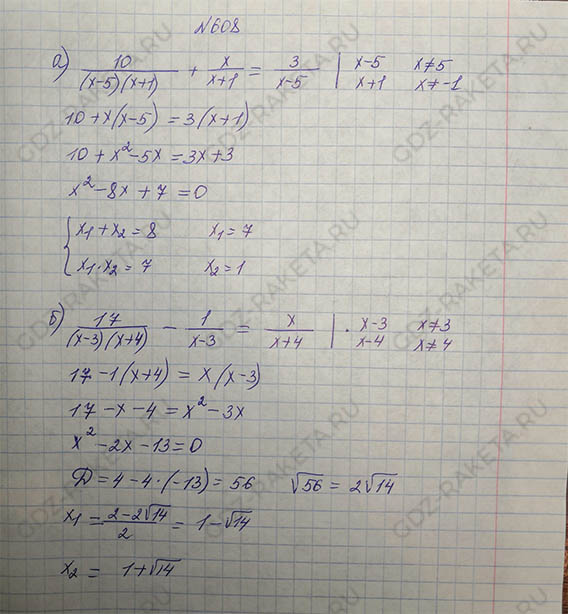 №608
а) 10/((x-5)(x+1)) + x/(x+1) = 3/(x-5) | x-5 x≠5
x+1 x≠-1
10+x(x-5) = 3(x+1)
10+x²-5x=3x+3
x²-8x+7=0
{x₁+x₂=8 x₁=7
x₁·x₂=7 x₂=1
б) 17/((x-3)(x+4)) - 1/(x-3) = x/(x+4) | · x-3 x≠3
x-4 x≠4
17-1(x+4) = x(x-3)
17-x-4=x²-3x
x²-2x-13=0
D=4-4·(-13)=56 √56 = 2√14
x₁ = (2-2√14)/2 = 1-√14
x₂ = 1+√14
GDZ-RAKETA.RU